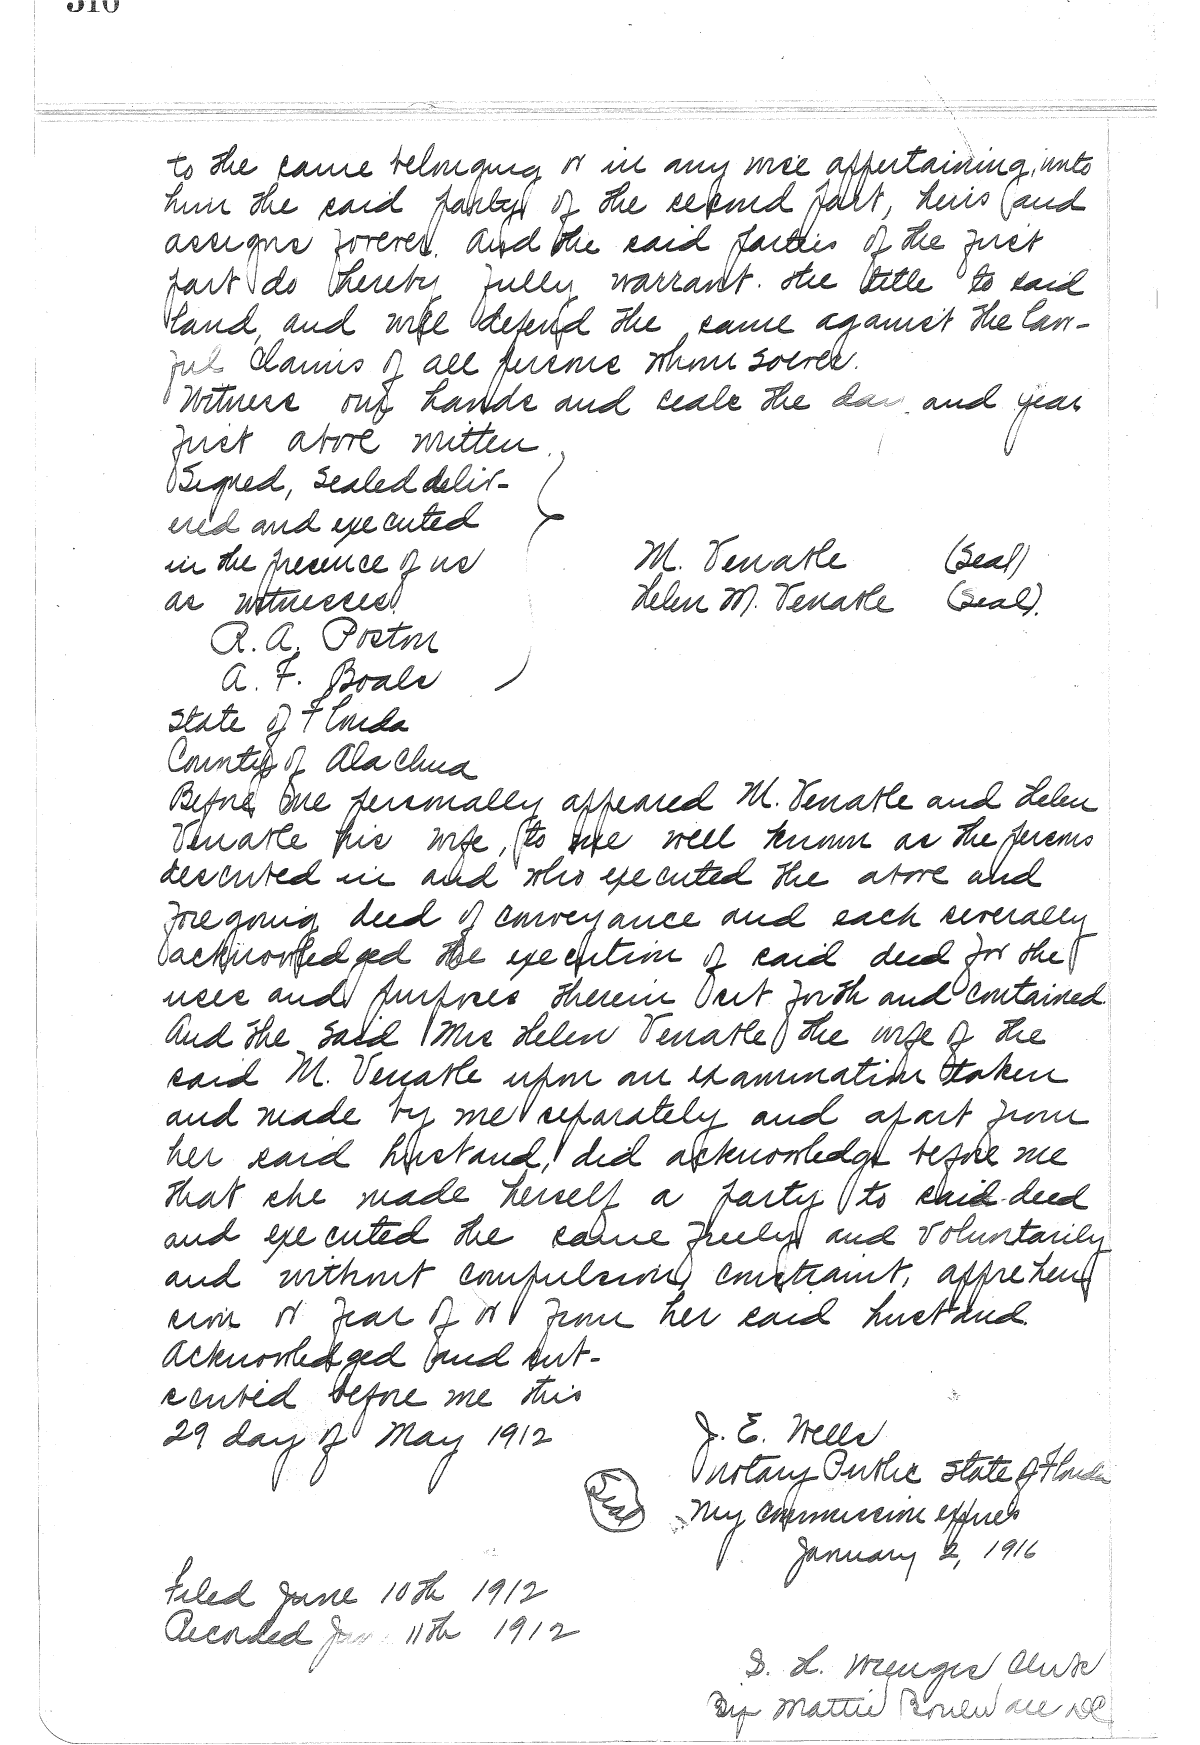 310
to the same belonging or in any wise appertaining, unto
him the said party of the second part, heirs and
assigns forever. And the said parties of the first
part do hereby fully warrant the title to said
land, and will defend the same against the law-
ful claims of all persons whom soever.
Witness our hands and seals the day and year
first above written.
Signed, Sealed deliv-
ered and executed
in the presence of us
as witnesses.
M. Venable (Seal)
Helen M. Venable (Seal).
R. A. Poston
A. F. Boals
State of Florida
County of Alachua
Before me personally appeared M. Venable and Helen
Venable his wife, to me well known as the persons
described in and who executed the above and
foregoing deed of conveyance and each severally
acknowledged the execution of said deed for the
uses and purposes therein set forth and contained
And the said Mrs Helen Venable the wife of the
said M. Venable upon an examination taken
and made by me separately and apart from
her said husband, did acknowledge before me
that she made herself a party to said deed
and executed the same freely and voluntarily
and without compulsion, constraint, apprehen
sion or fear of or from her said husband
Acknowledged and sub-
scribed before me this
29 day of May 1912
J. E. Wells
Notary Public State of Florida
Seal
My commission expires
January 2, 1916
Filed June 10th 1912
Recorded June 11th 1912
S. H. Wienges Clerk
By Mattie DC